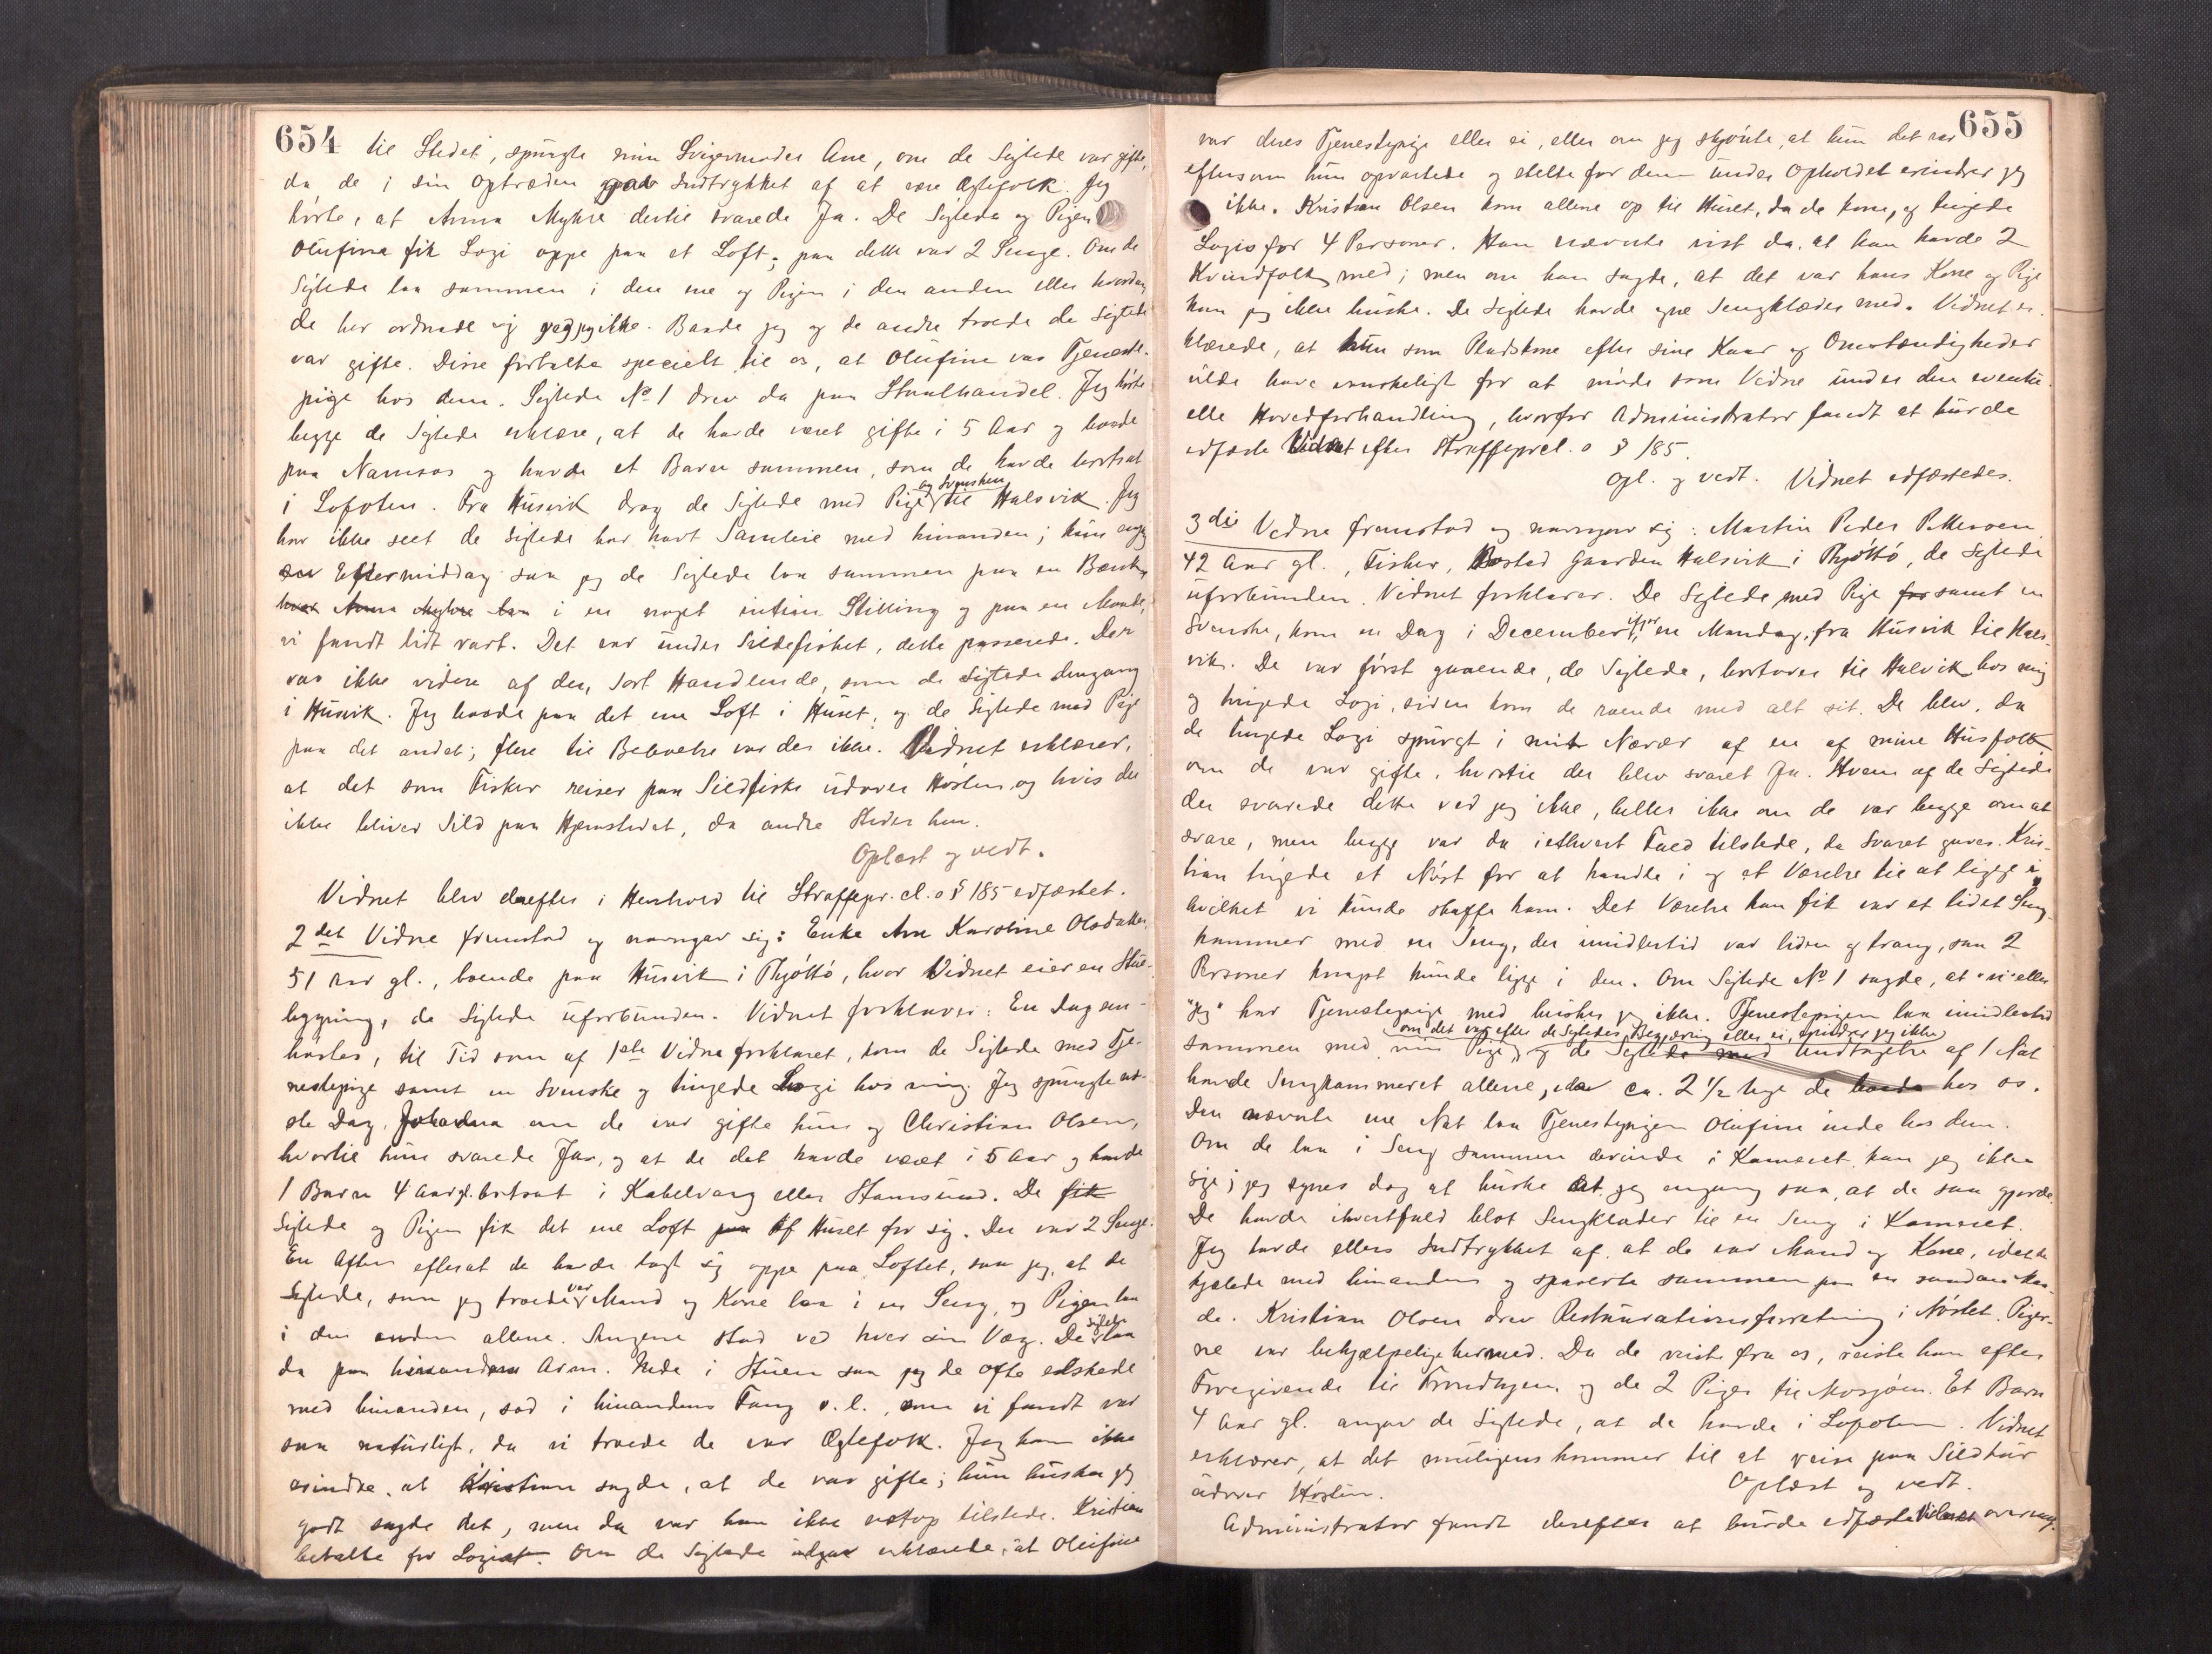 654
til Stedet, spurgte min Svigermoder Ane, om de Sigtede var gifte,
da de i sin Optræden gav Indtrykket af at være Ægtefolk. Jeg
hørte, at Anna Myhre dertil svarede Ja. De Sigtede og Pigen
Olufina fik Logi oppe paa et Loft; paa dette var 2 Senge. Om de
Sigtede laa sammen i den ene og Pigen i den anden eller hvordan
de her ordnede sig ved jeg ikke. Baade jeg og de andre troede de Sigtede
var gifte. Disse fortalte specielt til os, at Olufine var Tjeneste-
pige hos dem. Sigtede No 1 drev da paa Staalhandel. Jeg hørte
begge de Sigtede erklære, at de havde været gifte i 5 Aar og boede
paa Namsos og havde et Barn sammen, som de havde bortsat
i Lofoten. Fra Husvik drog de Sigtede med Pige og Svensken til Halsvik. Jeg
har ikke seet de Sigtede har havt Samleie med hinanden; kun engang
en Eftermiddag saa jeg de Sigtede laa sammen paa en Bænk,
hvor Anna Myhre laa i en noget intim Stilling og paa en Maade,
vi fandt lidt rart. Det var under Sildefisket, dette passerede. Der
var ikke videre af den Sort Handlende, som de Sigtede dengang
i Husvik. Jeg boede paa det ene Loft i Huset, og de Sigtede med Pige
paa det andet; flere til Beboelse var der ikke. Vidnet erklærer,
at det som Fisker reiser paa Sildfiske udover Høsten, og hvis der
ikke bliver Sild paa Hjemstedet, da andre Steder hen.
Oplæst og vedt.
Vidnet blev derefter i Henhold til Straffepr.l.s § 185 edfæstet.
2det Vidne fremstod og navngav sig: Enke Ane Karoline Olsdatter,
51 Aar gl., boende paa Husvik i Thjøttø, hvor Vidnet eier en Stue-
bygning, de Sigtede uforbunden. Vidnet forklarer: En Dag
høstes, til Tid som af 1ste Vidne forklaret, kom de Sigtede med Tje-
nestepige samt en Svenske og tingede Logi hos mig. Jeg spurgte
ste Dag, Johanna om de var gifte hun og Christian Olsen,
hvortil hun svarede Ja, og at de det havde været i 5 Aar og havde
1 Barn 4 Aar gl. bortsat i Kabelvaag eller Stamsund. De fik
Sigtede og Pigen fik det ene Loft paa af Huset for sig. Der var 2 Senge.
En Aften efterat de havde lagt sig oppe paa Loftet, saa jeg, at de
Sigtede, som jeg troede var Mand og Kone laa i en Seng, og Pigen laa
i den anden allene. Sengene stod ved hver sin Væg. De Sigtede laa
da paa hinandens Arm. Nede i Stuen saa jeg de ofte elskede
med hinanden, sad i hinandens Fang o.l., som vi fandt var
saa naturligt, da vi troede de var Ægtefolk. Jeg kan ikke
erindre, at Kristian sagde, at de var gifte; hun husker jeg
godt sagde det, men da var han ikke netop tilstede. Kristian
betalte for Logiet. Om de Sigtede erklærede, at Olufine
655
var deres Tjenestepige eller ei, eller om jeg skjønte, at hun det var
eftersom hun opvartede og stelte for dem under Opholdet erindrer jeg
ikke. Kristian Olsen kom allene op til Huset, da de kom, og tingede
Logis for 4 Personer. Han nævnte vist da, at han havde 2
Kvindfolk med; men om han sagde, at det var hans Kone og Pige
kan jeg ikke huske. De Sigtede havde egne Sengklæder med. Vidnet er-
klærede, at hun som Pladskone efter sine Kaar og Omstændigheder
vilde have vanskeligt for at møde som Vidne under den eventu-
elle Hovedforhandling, hvorfor Administrator fandt at burde
edfæste Vidnet efter Straffeprcl.s § 185.
Opl. og vedt. Vidnet edfæstedes.
3die Vidne fremstod og navngav sig: Martin Peder Pettersen
42 Aar gl., Fisker, Bosted Gaarden Halsvik i Thjøttø, de Sigtede
uforbunden. Vidnet forklarer. De Sigtede med Pige for samt en
Svenske, kom en Dag i December ifjor, en Mandag, fra Husvik til Hals-
vik. De var først gaaende, de Sigtede, bortover til Halvik hos mig
og tingede Logi, siden kom de roende med alt sit. De blev, da
de tingede Logi spurgt i mit Nærvær af en af mine Husfolk
om de var gifte, hvortil der blev svaret Ja. Hvem af de Sigtede
der svarede dette ved jeg ikke, heller ikke om de var begge om at
svare, men begge var da iethvert Fald tilstede, da Svaret gaves. Kris-
tian tingede et Nøst for at handle i og et Værelse til at ligge i
hvilket vi kunde skaffe ham. Det Værelse han fik var et lidet Seng-
kammer med en Seng, der imidlertid var liden og trang, saa 2
Personer knapt kunde ligge i den. Om Sigtede No 1 sagde, at "vi" eller
"jeg" har Tjenestepige med husker jeg ikke. Tjenestepigen laa imidlertid
om det var efter de Sigtedes Begjæring eller ei, erindrer jeg ikke
sammen med min Pige, og de Sigtede med Undtagelse af 1 Nat
havde Sengkammeret allene, i de ca. 2 1/2 Uge de boede hos os.
Den nævnte ene Nat laa Tjenestepigen Olufine inde hos dem.
Om de laa i Seng sammen derinde i Kameret, kan jeg ikke
sige; jeg synes dog at huske at jeg engang saa, at de saa gjorde.
De havde ihvertfald blot Sengklæder til en Seng i Kameret.
Jeg havde ellers Indtrykket af, at de var Mand og Kone, idet de
kjælede med hinanden og spaserte sammen paa en saadan Maa-
de. Kristian Olsen drev Restaurationsforretning i Nøstet. Piger-
ne var behjælpelige hermed. Da de reiste fra os, reiste han efter
Foregivende til Trondhjem og de 2 Piger til Mosjøen. Et Barn
4 Aar gl. angav de Sigtede, at de havde i Lofoten. Vidnet
erklærer, at det muligens kommer til at reise paa Sildtur
udover Høsten. Oplæst og vedt.
Administrator fandt derefter at burde edfæste Vidnet